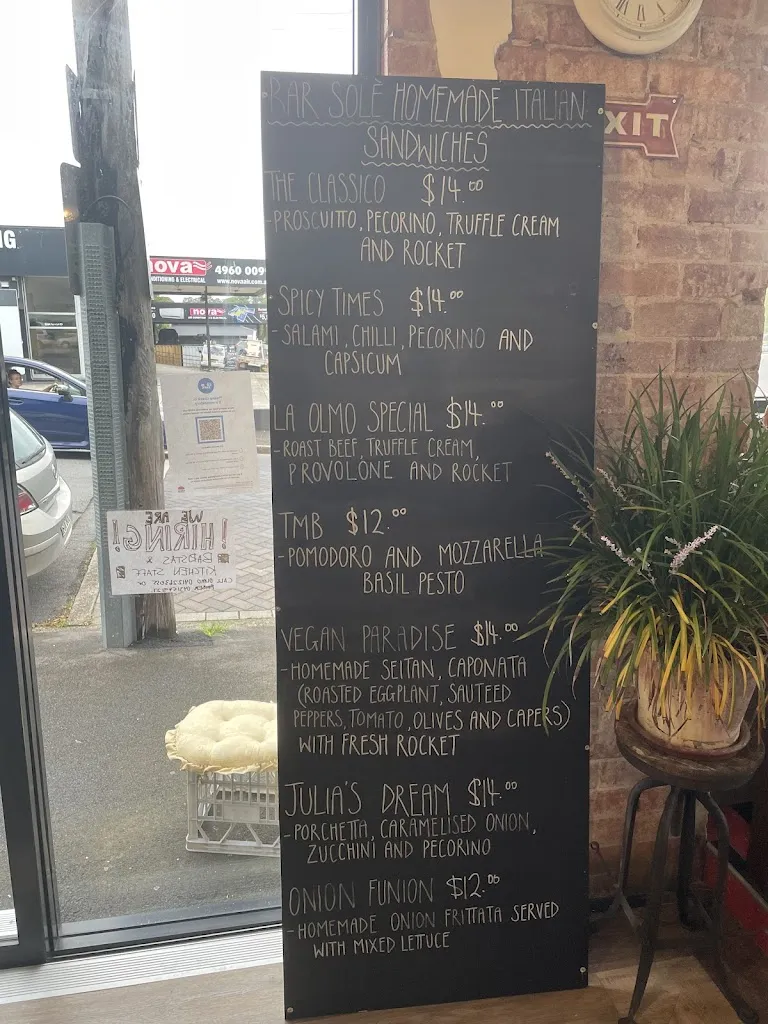 BAR SOLE HOMEMADE ITALIAN
SANDWICHES
THE CLASSICO $14.00
-PROSCUITTO, PECORINO, TRUFFLE CREAM
AND ROCKET
SPICY TIMES $14.00
-SALAMI, CHILLI, PECORINO AND
CAPSICUM
LA OLMO SPECIAL $14.00
-ROAST BEEF, TRUFFLE CREAM,
PROVOLONE AND ROCKET
TMB $12.00
-POMODORO AND MOZZARELLA
BASIL PESTO
VEGAN PARADISE $14.00
-HOMEMADE SEITAN, CAPONATA
(ROASTED EGGPLANT, SAUTEED
PEPPERS, TOMATO, OLIVES AND CAPERS)
WITH FRESH ROCKET
JULIA'S DREAM $14.00
-PORCHETTA, CARAMELISED ONION,
ZUCCHINI AND PECORINO
ONION FUNION $12.00
-HOMEMADE ONION FRITTATA SERVED
WITH MIXED LETTUCE
XIT
NG
nova 4960 009
DITIONING & ELECTRICAL www.novaair.com.a
nova
WE ARE
HIRING!
BARISTAS &
KITCHEN STAFF